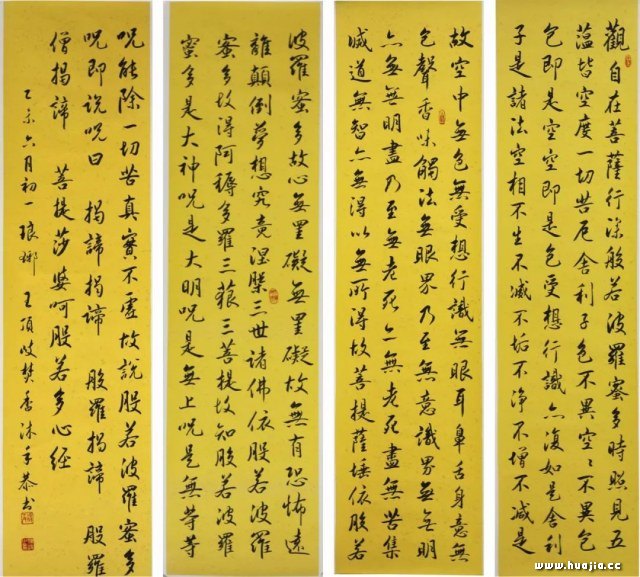 觀自在菩薩行深般若波羅蜜多時照見五
蘊皆空度一切苦厄舍利子色不異空〻不異色
色即是空空即是色受想行識亦復如是舍利
子是諸法空相不生不滅不垢不淨不增不減是
故空中無色無受想行識無眼耳鼻舌身意無
色聲香味觸法無眼界乃至無意識界無無明
亦無無明盡乃至無老死亦無老死盡無苦集
滅道無智亦無得以無所得故菩提薩埵依般若
波羅蜜多故心無罣礙無罣礙故無有恐怖遠
離顛倒夢想究竟涅槃三世諸佛依般若波羅
蜜多故得阿耨多羅三藐三菩提故知般若波羅
蜜多是大神呪是大明呪是無上呪是無等等
呪能除一切苦真實不虛故說般若波羅蜜多
呪即說呪曰 揭諦揭諦 般羅揭諦 般羅
僧揭諦 菩提莎婆呵般若多心經
乙未六月初一琅琊王頂岐焚香沐手恭书
www.huajia.cc